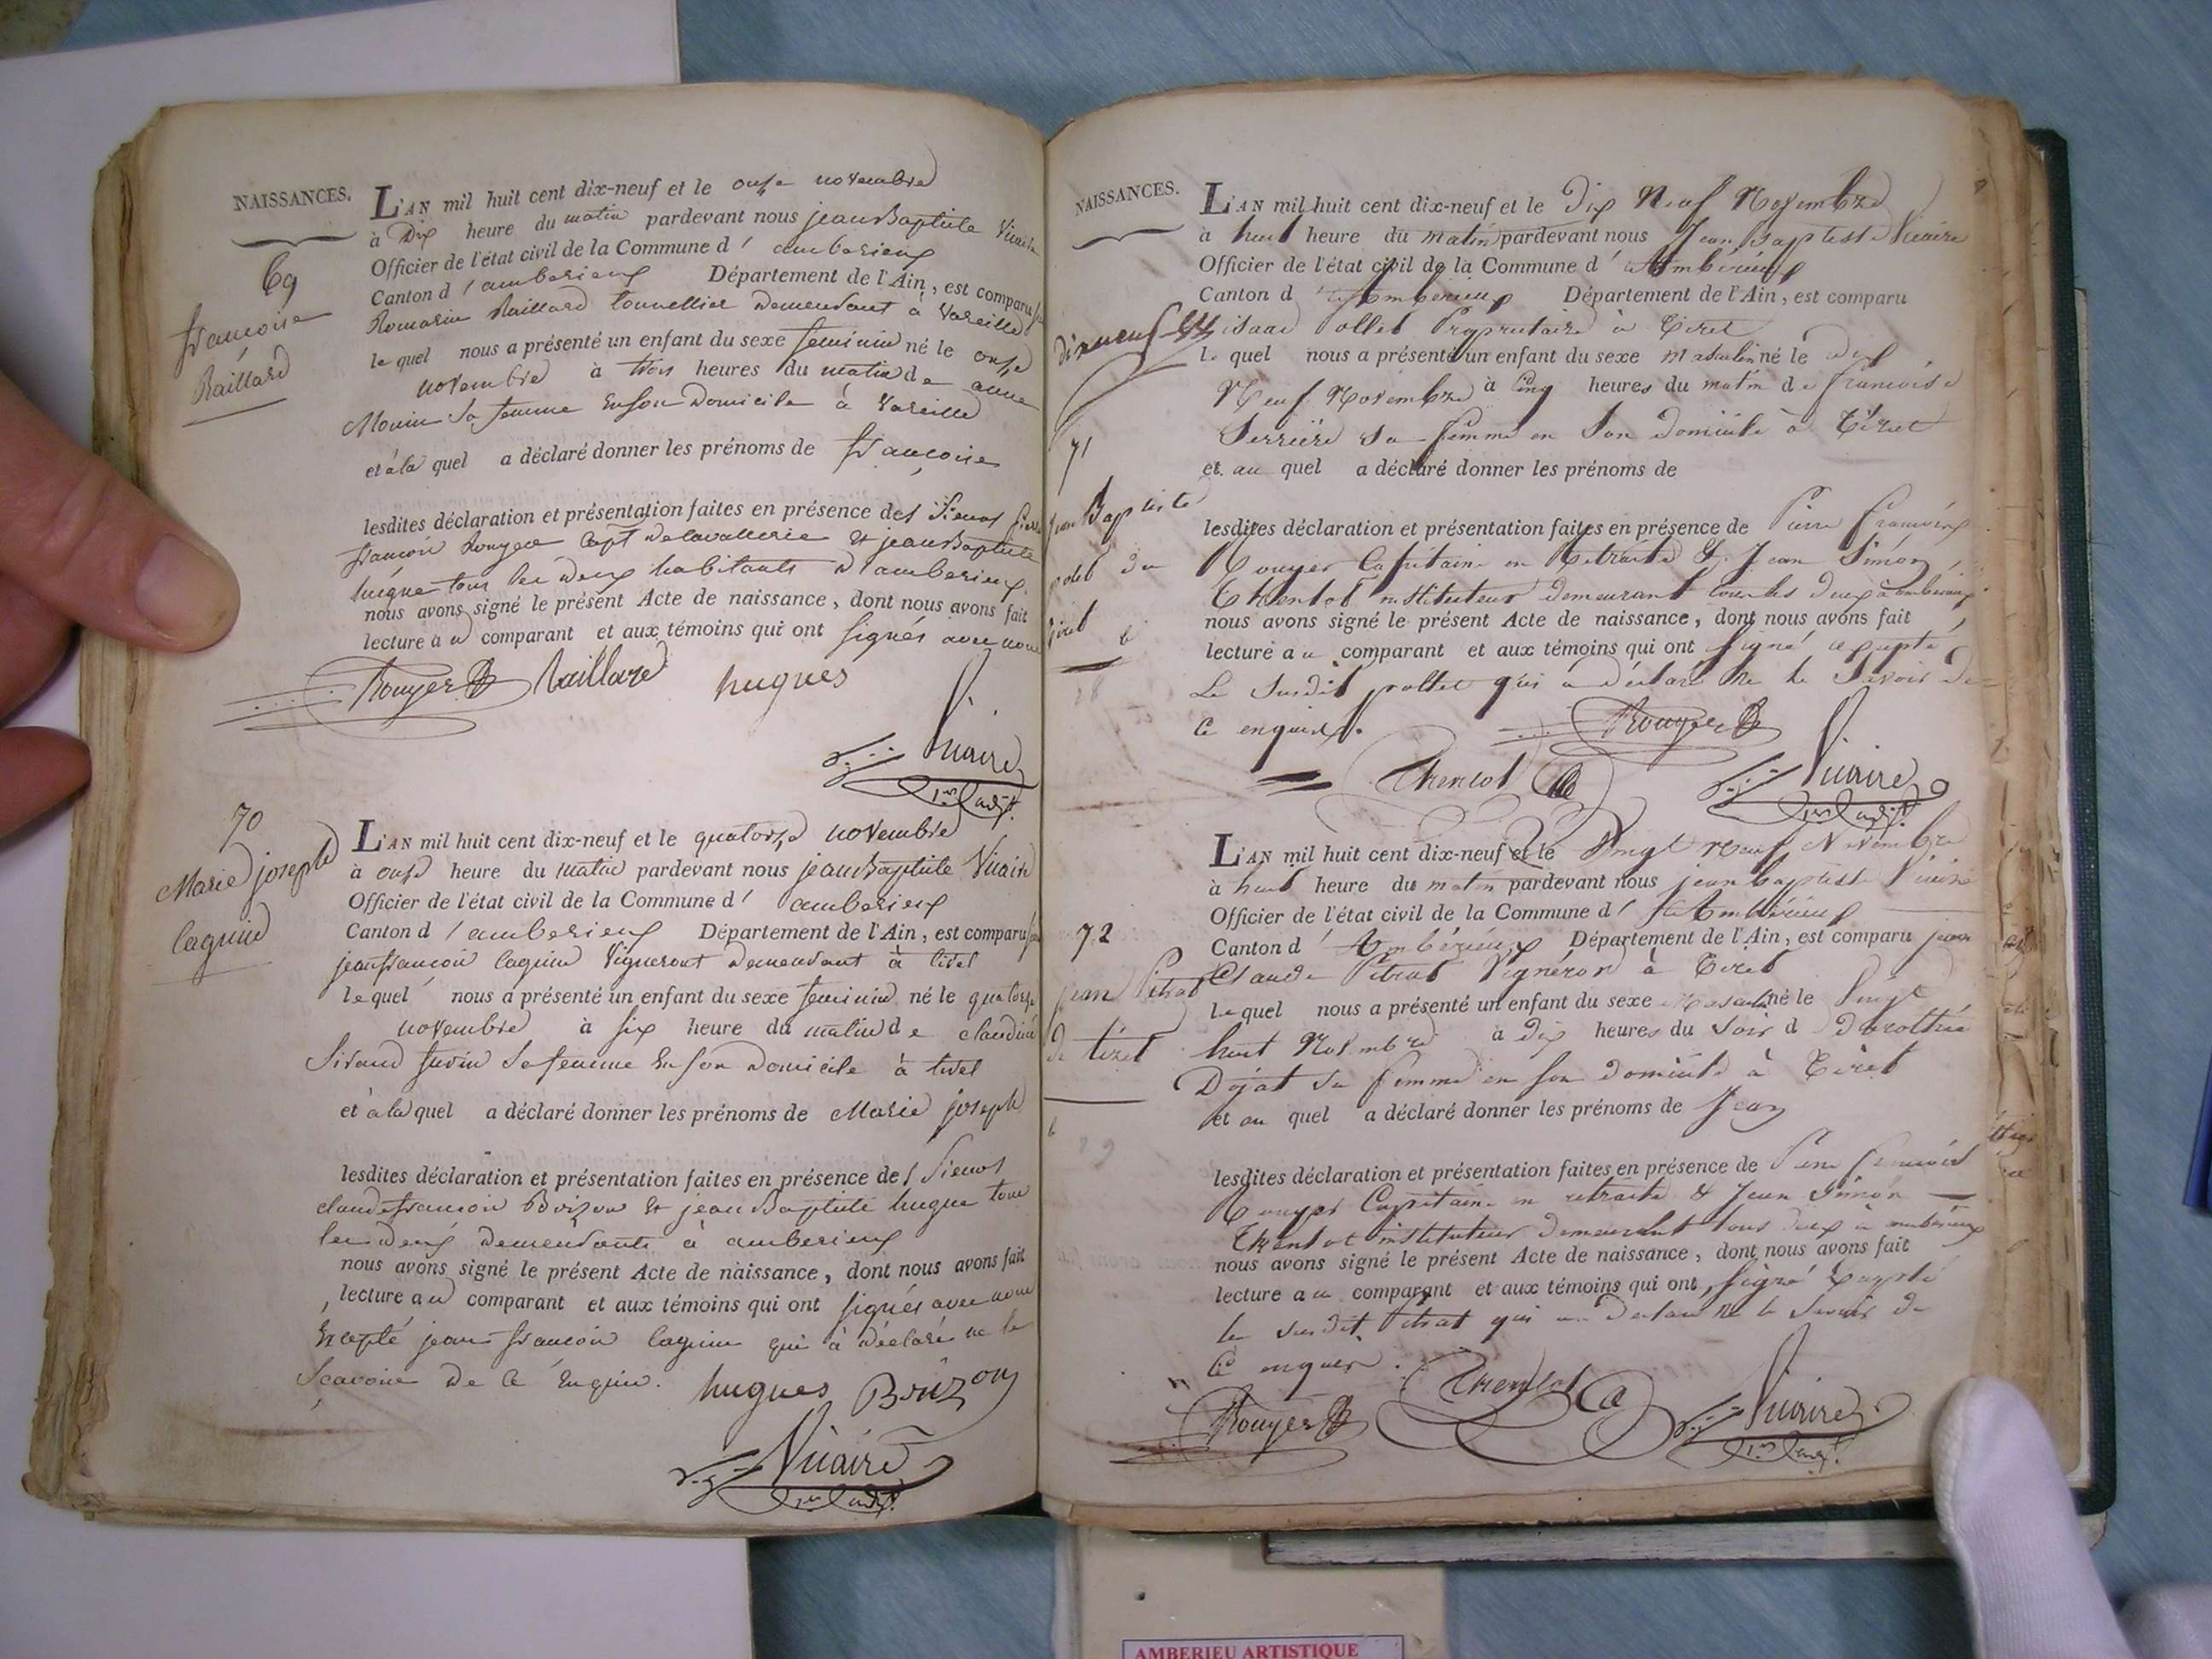 NAISSANCES.
69
françoise
Raillard
L'AN mil huit cent dix-neuf et le onse novembre
à Dix heure du matin pardevant nous jean Baptiste Vicaire
Officier de l'état civil de la Commune d' amberieux
Canton d' amberieux Département de l'Ain, est comparu
Romarin Raillard tonnellier Demeurant à Vareille
le quel nous a présenté un enfant du sexe feminin né le onse
novembre à trois heures du matin de anne
Monin sa femme En son Domicile à Vareille
et à la quel a déclaré donner les prénoms de françoise
lesdites déclaration et présentation faites en présence des Sieurs pierre
françois Rouyer Capt De cavallerie Et jean Baptiste
hugue tous les deux habitants D'amberieux
nous avons signé le présent Acte de naissance, dont nous avons fait
lecture au comparant et aux témoins qui ont signés avec nous
Rouyer Raillard hugues
Vicaire
1er adjt.
70
Marie joseph
Caguin
L'AN mil huit cent dix-neuf et le quatorse novembre
à onse heure du matin pardevant nous jean Baptiste Vicaire
Officier de l'état civil de la Commune d' amberieux
Canton d' amberieux Département de l'Ain, est comparu
jean françois Caguin Vigneront Demeurant à tiret
le quel nous a présenté un enfant du sexe feminin né le quatorse
novembre à six heure du matin de claudine
Sirand sa femme En son Domicile à tiret
et à la quel a déclaré donner les prénoms de Marie joseph
lesdites déclaration et présentation faites en présence des Sieurs
claude françois Boizon Et jean Baptiste hugue tous
les deux Demeurants à amberieux
nous avons signé le présent Acte de naissance, dont nous avons fait
lecture au comparant et aux témoins qui ont signés avec nous
Excepté jean françois Caguin qui à déclaré ne le
Scavoir De Ce Enquis. hugues Boizon
Vicaire
1er adjt.
NAISSANCES.
71
Jean Baptiste
polet de
tiret
L'AN mil huit cent dix-neuf et le Dix Neuf Novembre
à huit heure du matin pardevant nous Jean Baptiste Vicaire
Officier de l'état civil de la Commune d' Ambérieux
Canton d' Ambérieux Département de l'Ain, est comparu
isaac Pollet Propriétaire à Tiret
le quel nous a présenté un enfant du sexe masculin né le dix
Neuf Novembre à Cinq heures du matin de francoise
Serrière sa femme en son domicile à Tiret
et au quel a déclaré donner les prénoms de
lesdites déclaration et présentation faites en présence de Pierre François
Rouyer Capitaine en Retraite & Jean Simon
Thentot instituteur demeurant tous les deux à ambérieux
nous avons signé le présent Acte de naissance, dont nous avons fait
lecture au comparant et aux témoins qui ont signé excepté
Le Susdit pollet qui a déclaré Ne le Savoir de
Ce enquis.
Rouyer
Thentot Vicaire
1er adjt.
72
jean Pitrat
de tiret
L'AN mil huit cent dix-neuf et le Vingt Neuf Novembre
à huit heure du matin pardevant nous jean baptiste Vicaire
Officier de l'état civil de la Commune d' Ambérieux
Canton d' Ambérieux Département de l'Ain, est comparu jean
Claude Pitrat Vignéron à Tiret
le quel nous a présenté un enfant du sexe Masculin né le Vingt
huit Novembre à dix heures du Soir d dorothée
Dojat sa femme en son domicile à Tiret
et au quel a déclaré donner les prénoms de Jean
lesdites déclaration et présentation faites en présence de Pierre François
Rouyer Capitaine en retraite & Jean Simon
Thentot instituteur demeurant tous deux à ambérieux
nous avons signé le présent Acte de naissance, dont nous avons fait
lecture au comparant et aux témoins qui ont signé Excepté
le susdit Pitrat qui a déclaré Ne le Savoir de
Ce enquis.
Rouyer Thentot Vicaire
1er adjt.
AMBERIEU ARTISTIQUE